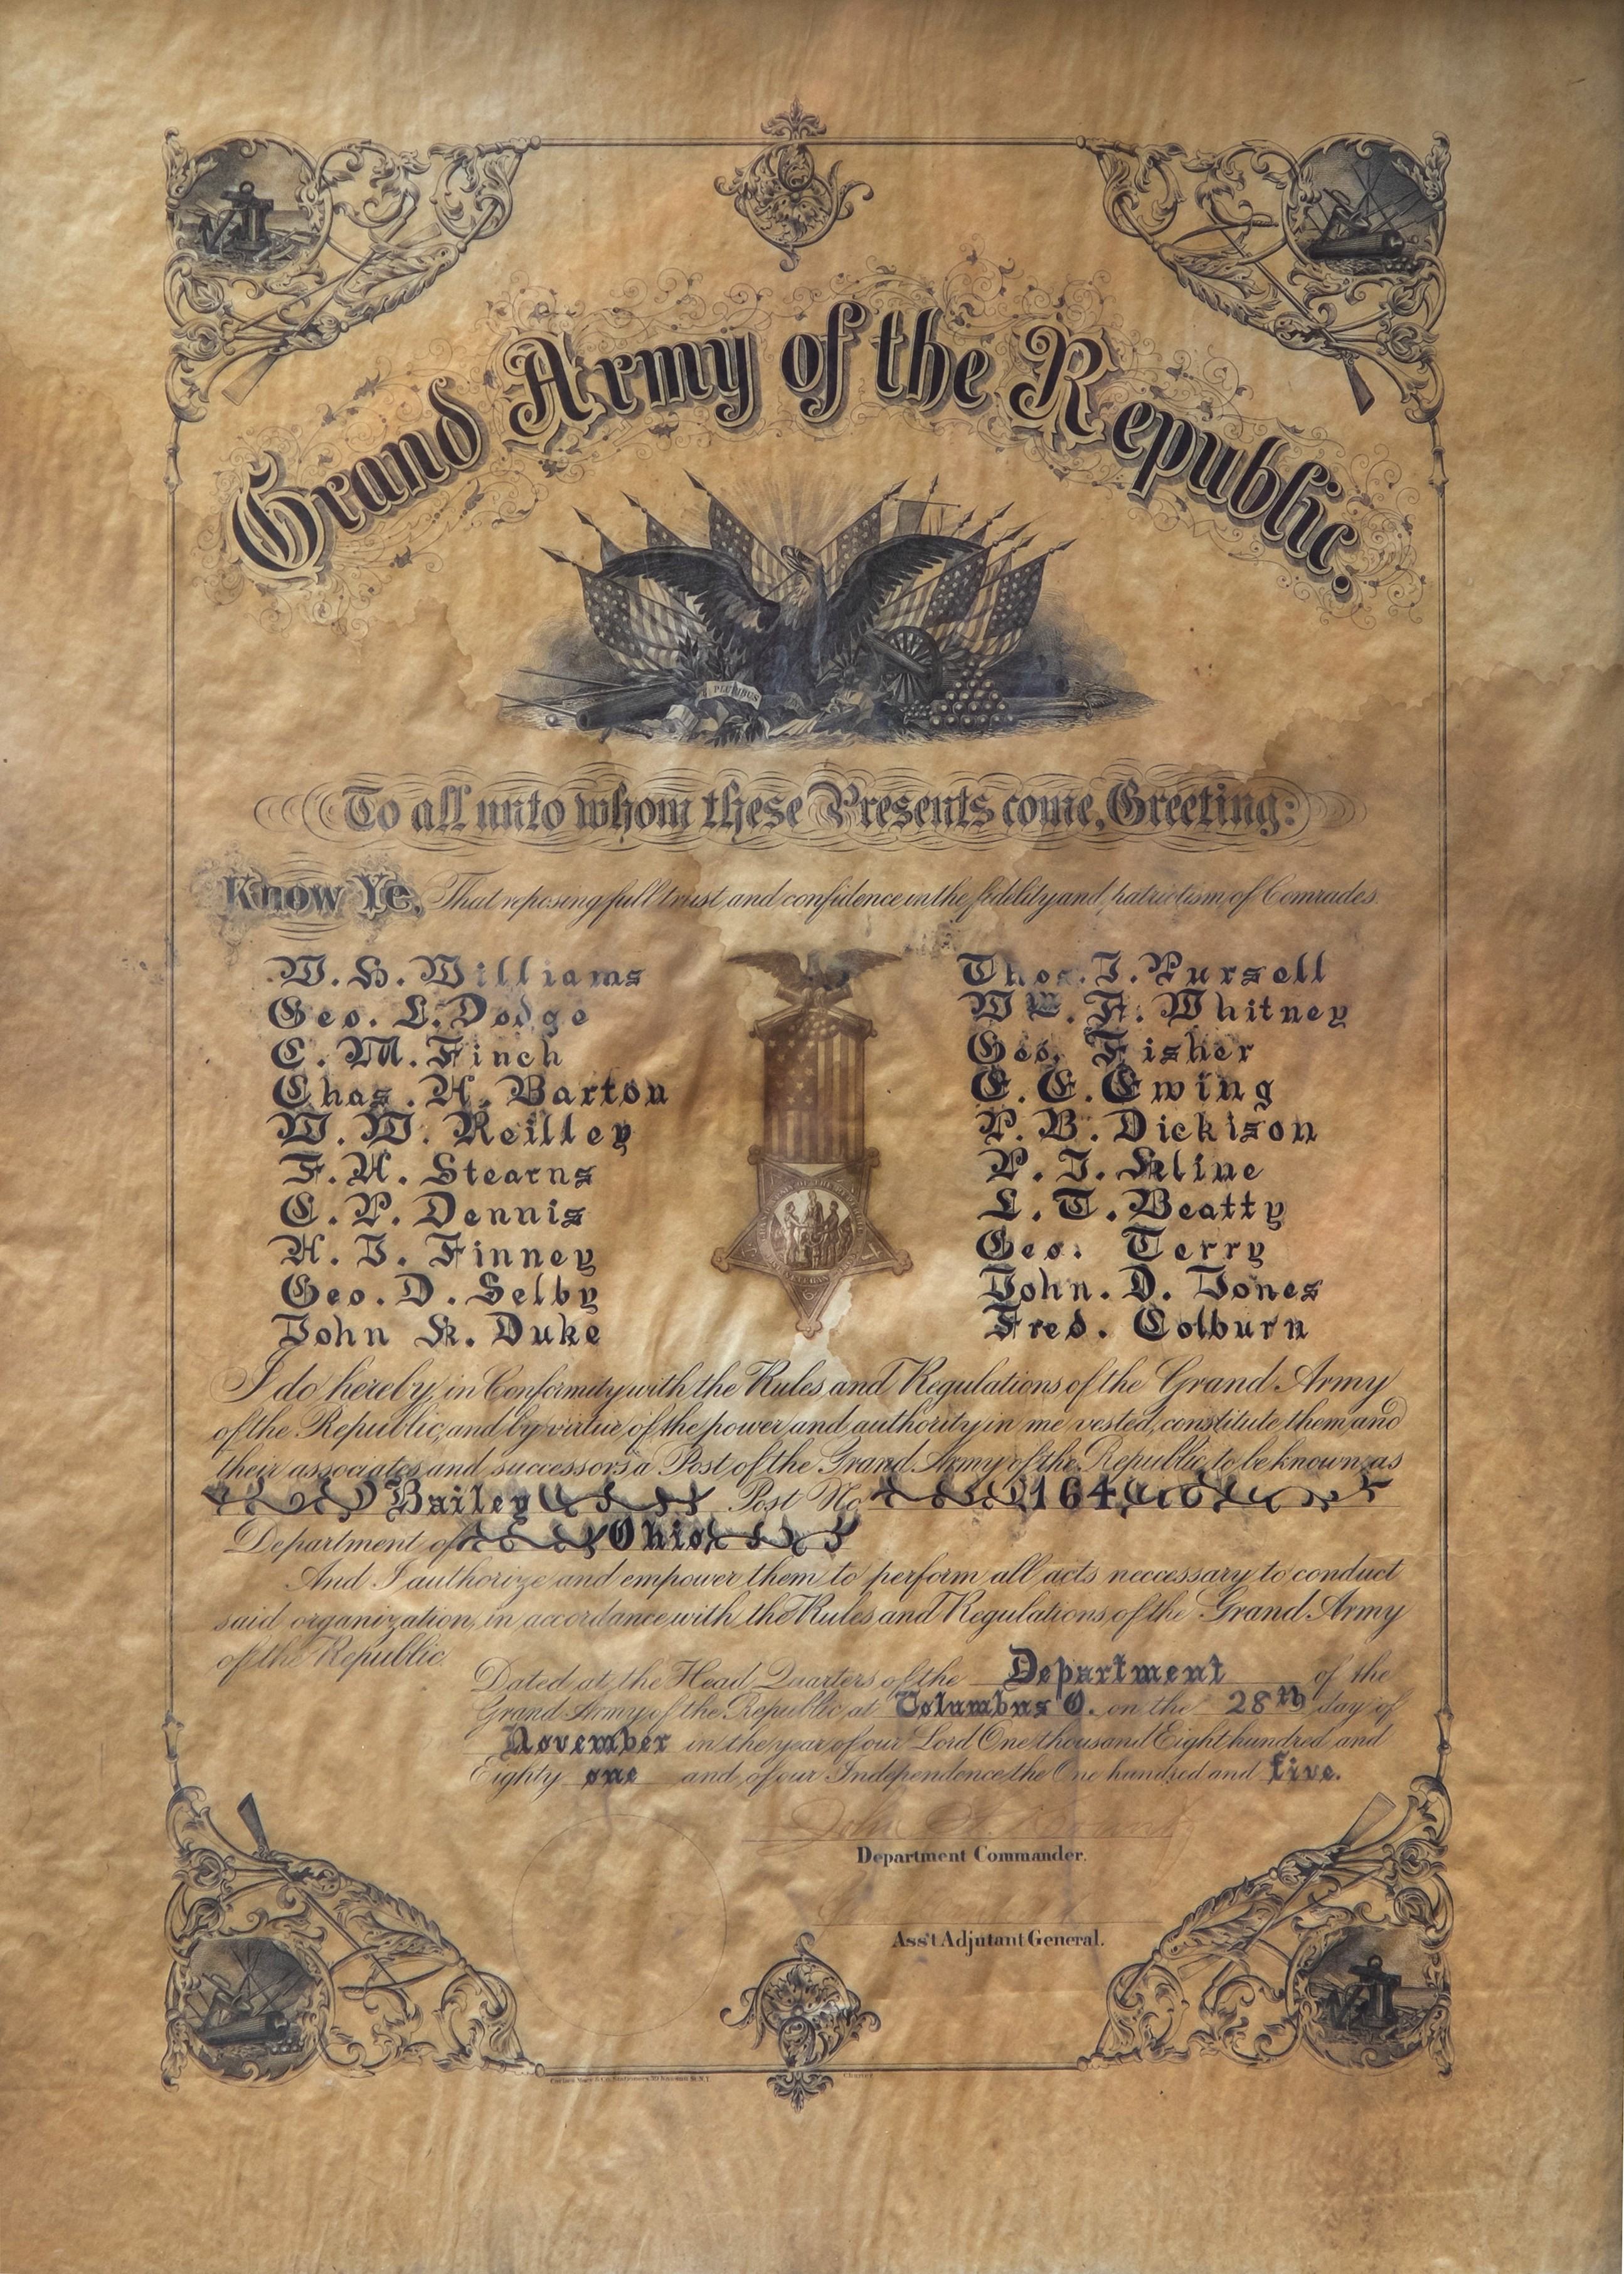 Grand Army of the Republic.
PLURIBUS
To all unto whom these Presents come, Greeting:
Know Ye, That reposing full trust and confidence in the fidelity and patriotism of Comrades.
W. H. Williams
Geo. L. Dodge
C. M. Finch
Chas. H. Barton
W. W. Reilley
F. H. Stearns
C. P. Dennis
H. J. Finney
Geo. D. Selby
John K. Duke
Thos. J. Pursell
Wm. A. Whitney
Geo. Fisher
E. E. Ewing
P. B. Dickison
P. J. Kline
L. T. Beatty
Geo. Terry
John. D. Jones
Fred. Colburn
I do hereby, in Conformity with the Rules and Regulations of the Grand Army
of the Republic, and by virtue of the power and authority in me vested, constitute them and
their associates and successors a Post of the Grand Army of the Republic, to be known as
Bailey Post No. 164,
Department of Ohio
And I authorize and empower them to perform all acts neccessary to conduct
said organization, in accordance with the Rules and Regulations of the Grand Army
of the Republic.
Dated at the Head Quarters of the Department of the
Grand Army of the Republic, at Columbus O. on the 28th day of
November in the year of our Lord One thousand Eight hundred and
Eighty one and of our Independence the One hundred and five.
John
Department Commander.
Ass't Adjutant General.
Charter